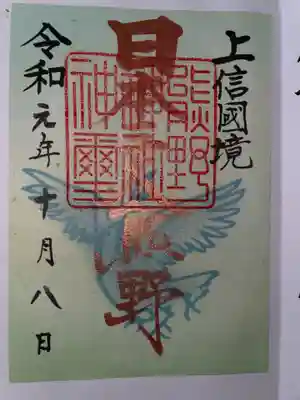 上信國境
日本 熊野
令和元年十月八日
熊野
神璽